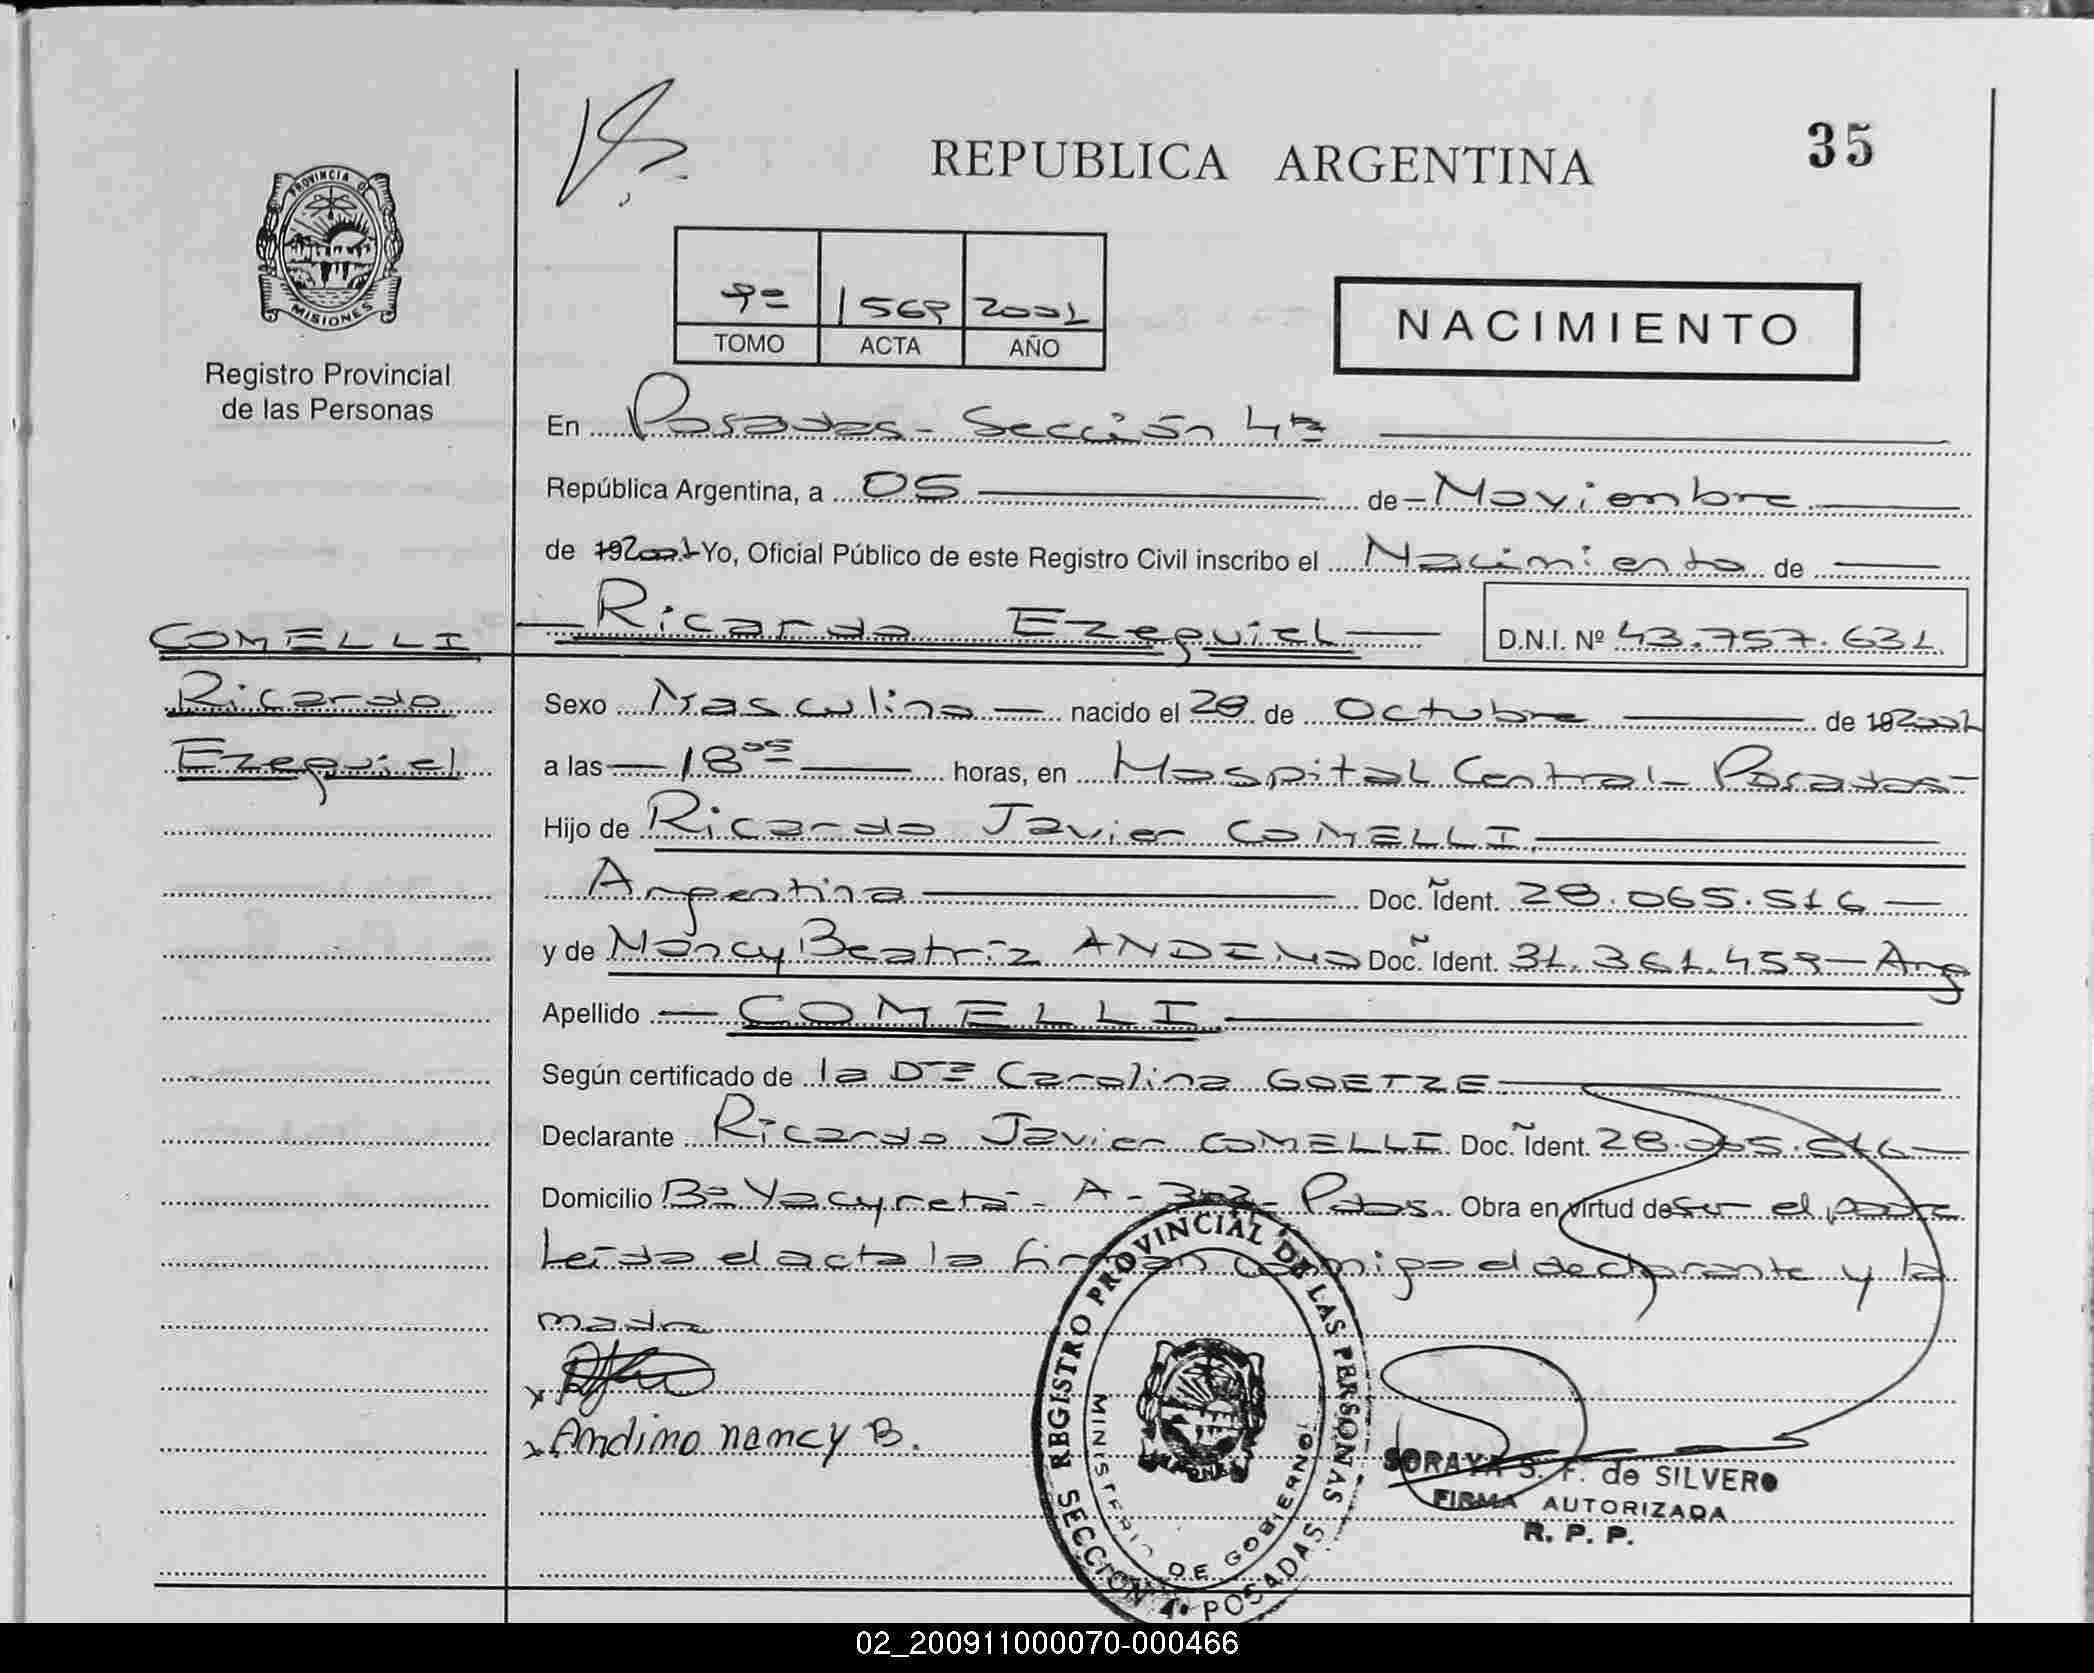 35
REPUBLICA ARGENTINA
PROVINCIA DE
MISIONES
Registro Provincial
de las Personas
9º 1569 2001
TOMO ACTA AÑO
NACIMIENTO
En Posadas - Sección 4ª
República Argentina, a 05 de Noviembre
de 192001 Yo, Oficial Público de este Registro Civil inscribo el Nacimiento de
Ricardo Ezequiel D.N.I. Nº 43.757.631
COMELLI
Ricardo
Ezequiel
Sexo Masculino nacido el 28 de Octubre de 192001
a las 18 05 horas, en Hospital Central - Posadas -
Hijo de Ricardo Javier COMELLI
Argentina Doc. Ident. 28.065.516
y de Nancy Beatriz ANDINO Doc. Ident. 31.361.459 - Arg
Apellido COMELLI
Según certificado de la Dra Carolina GOETZE
Declarante Ricardo Javier COMELLI Doc. Ident. 28.065.516
Domicilio Bº Yacyretá - A - - Pdas. Obra en virtud de ser el padre
Leída el acta la firman conmigo el declarante y la
madre
x
x Andino nancy B.
REGISTRO PROVINCIAL DE LAS PERSONAS
MINISTERIO DE GOBIERNO
SECCION 4ª POSADAS
SORAYA S. F. de SILVERO
FIRMA AUTORIZADA
R. P. P.
02_200911000070-000466